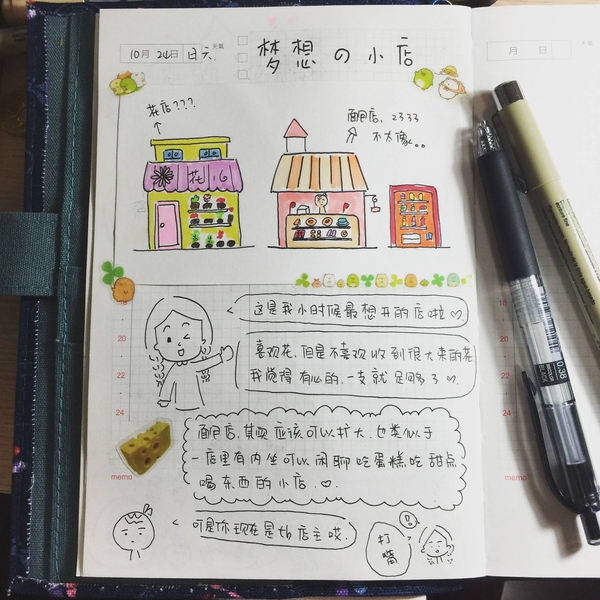 梦想の小店
10月24日 日 天氣
月 日 天氣
花店???
面包店, 2333
不太像。。
花
这是我小时候最想开的店啦♡.
喜欢花,但是不喜欢收到很大束的花
我觉得有心的,一支就足够了♡.
面包店,其实应该可以扩大,也类似于
一店里有内坐可以闲聊吃蛋糕吃甜点
喝东西的小店.♡.
可是你现在是tb店主哎.
打嘴
18
20
22
24
memo
18
20
22
24
memo
0.38
BLACK